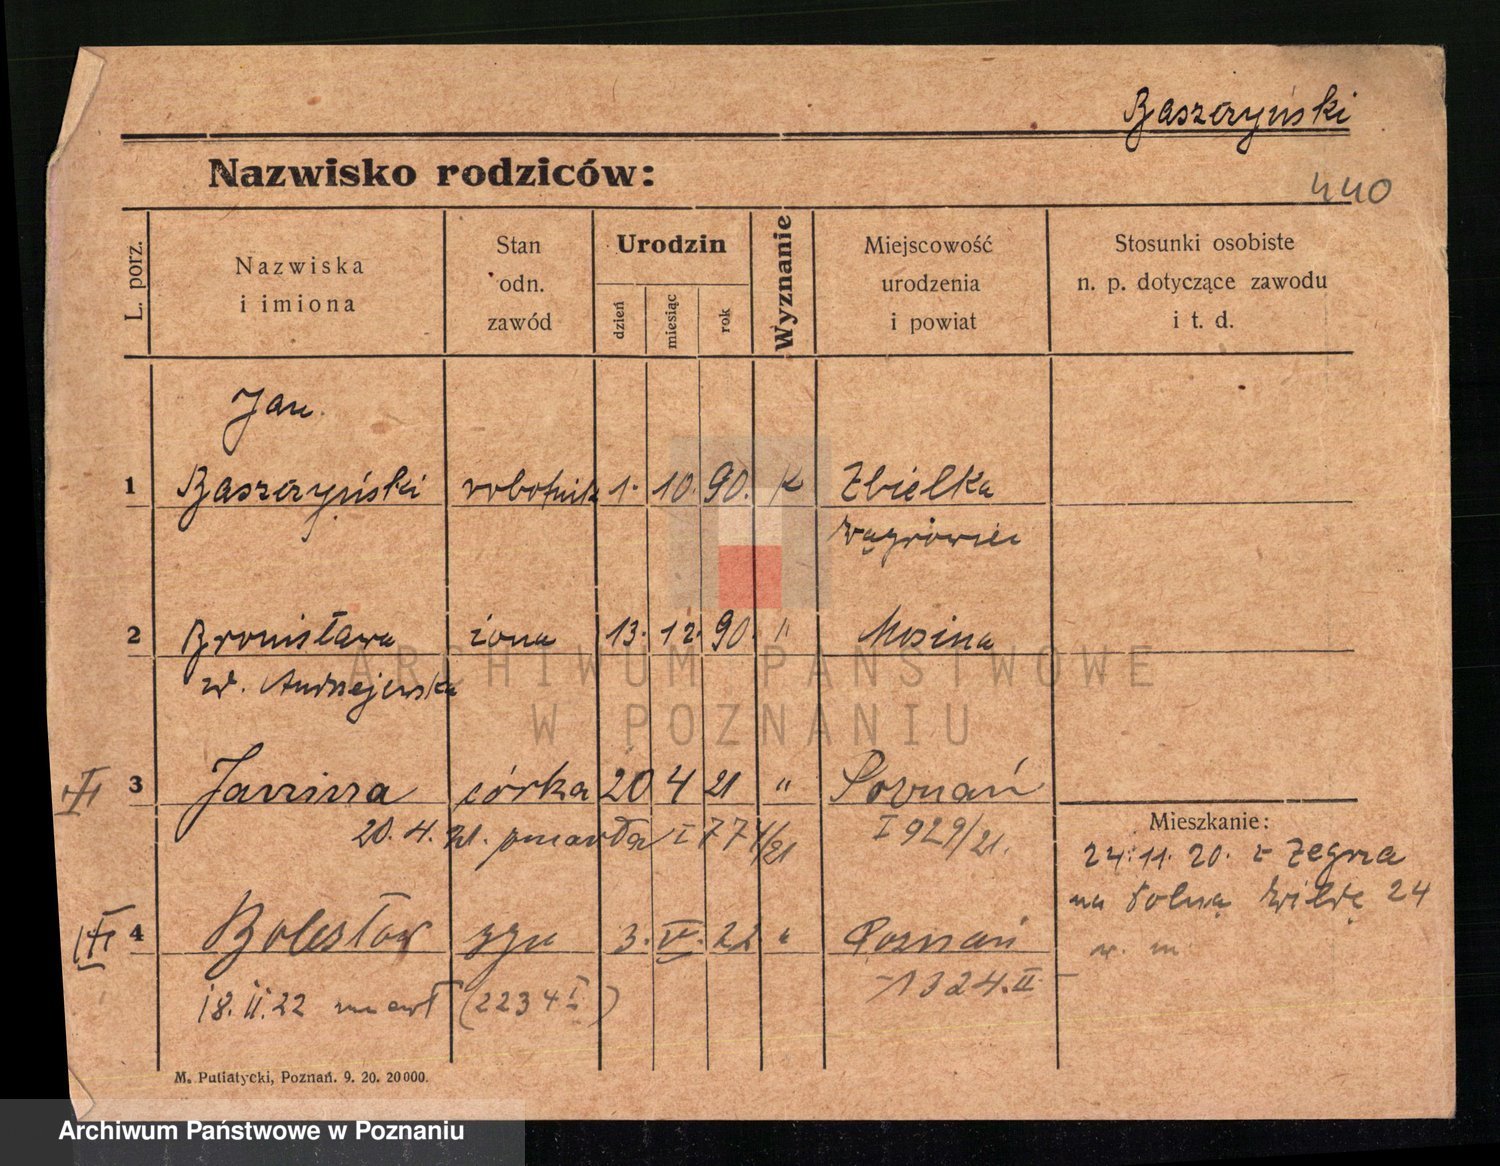 Baszczyński
Nazwisko rodziców:
440
L. porz.
Nazwiska
i imiona
Stan
odn.
zawód
Urodzin
dzień
miesiąc
rok
Wyznanie
Miejscowość
urodzenia
i powiat
Stosunki osobiste
n. p. dotyczące zawodu
i t. d.
Jan
1 Baszczyński robotnik 1. 10. 90. k Zbietka
Wągrówiec
2 Bronisława żona 13. 12. 90. " Mosina
z d. Andrzejewska
3 Janina córka 20 4 21 " Poznań
20. 4. 21. pmarła I 774/21 I 929/21.
Mieszkanie:
24.11.20. z Zegrza
na Dolną Wildę 24
4 Bolesław syn 3. V. 22 " Poznań
1324.II
18.II.22 zmarł (2234 I)
M. Putiatycki, Poznań. 9. 20. 20000.
ARCHIWUM PAŃSTWOWE
W POZNANIU
Archiwum Państwowe w Poznaniu